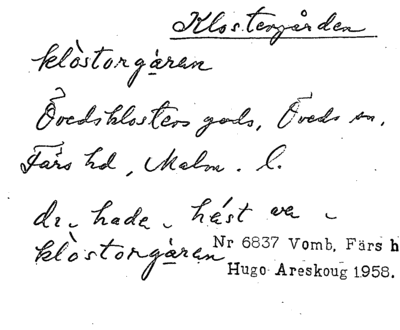 Klostergården
klòstorgàren
Övedsklosters gods, Öveds sn,
Färs hd, Malm. l.
klòstorgàren
Nr 6837 Vomb, Färs h
Hugo Areskoug 1958.